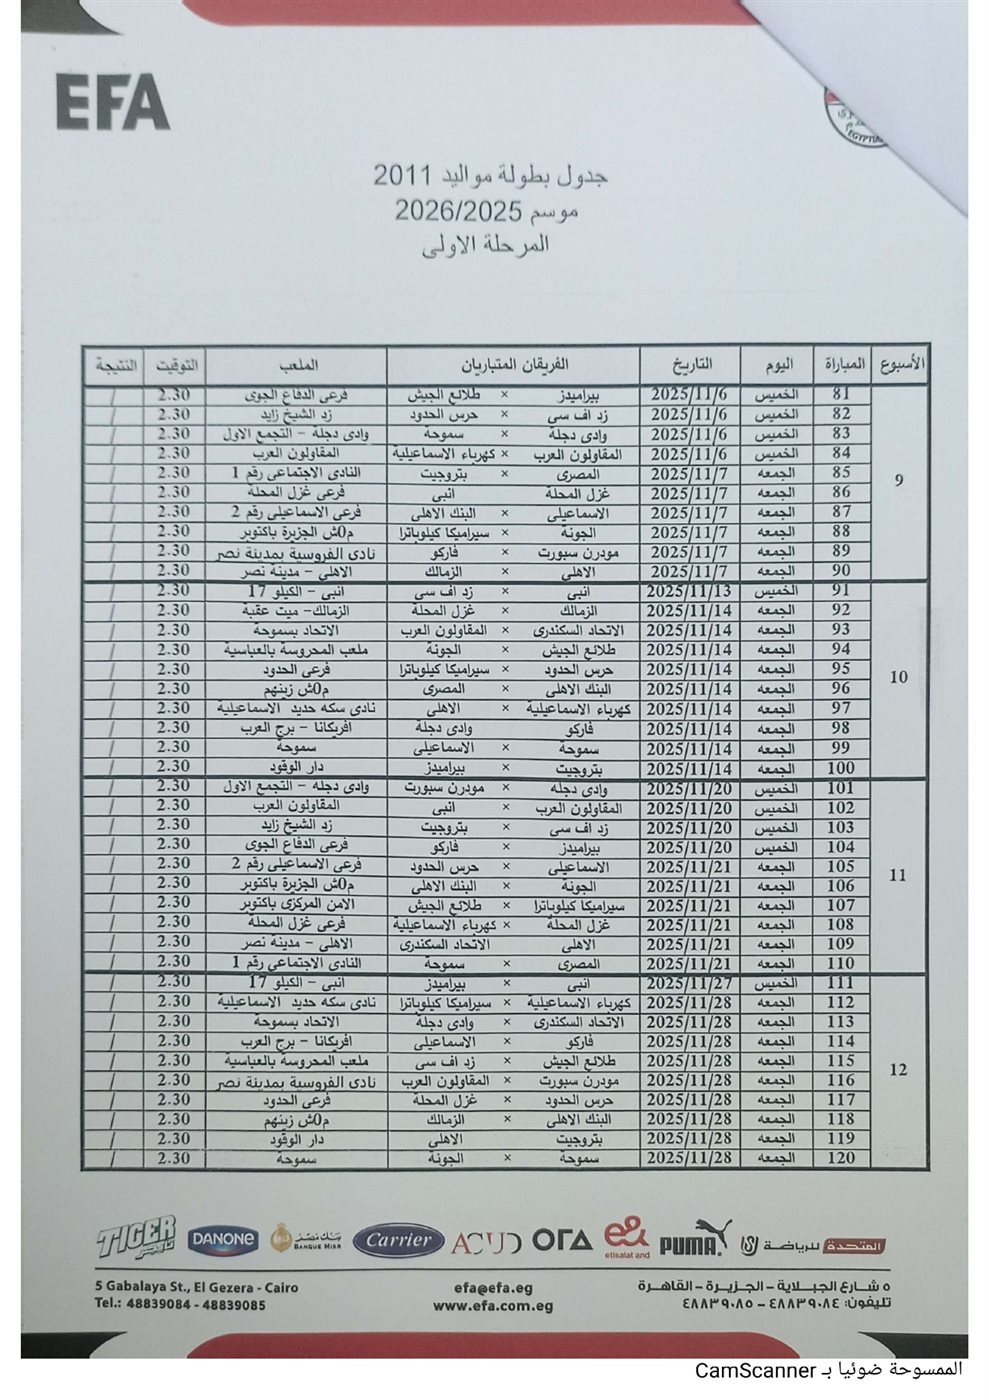 EFA
EGYPTIA
جدول بطولة مواليد 2011
موسم 2026/2025
المرحلة الاولى
الأسبوع المباراة اليوم التاريخ الفريقان المتباريان الملعب التوقيت النتيجة
9
81 الخميس 2025/11/6 بيراميدز × طلائع الجيش فرعى الدفاع الجوى 2.30 /
82 الخميس 2025/11/6 زد اف سى × حرس الحدود زد الشيخ زايد 2.30 /
83 الخميس 2025/11/6 وادى دجلة × سموحة وادى دجلة - التجمع الاول 2.30 /
84 الخميس 2025/11/6 المقاولون العرب × كهرباء الاسماعيلية المقاولون العرب 2.30 /
85 الجمعه 2025/11/7 المصرى × بتروجيت النادى الاجتماعى رقم 1 2.30 /
86 الجمعه 2025/11/7 غزل المحلة انبى فرعى غزل المحلة 2.30 /
87 الجمعه 2025/11/7 الاسماعيلى × البنك الاهلى فرعى الاسماعيلى رقم 2 2.30 /
88 الجمعه 2025/11/7 الجونة × سيراميكا كيلوباترا م0ش الجزيرة باكتوبر 2.30 /
89 الجمعه 2025/11/7 مودرن سبورت × فاركو نادى الفروسية بمدينة نصر 2.30 /
90 الجمعه 2025/11/7 الاهلى × الزمالك الاهلى - مدينة نصر 2.30 /
10
91 الخميس 2025/11/13 انبى × زد اف سى انبى - الكيلو 17 2.30 /
92 الجمعه 2025/11/14 الزمالك × غزل المحلة الزمالك- ميت عقبة 2.30 /
93 الجمعه 2025/11/14 الاتحاد السكندرى × المقاولون العرب الاتحاد بسموحة 2.30 /
94 الجمعه 2025/11/14 طلائع الجيش × الجونة ملعب المحروسة بالعباسية 2.30 /
95 الجمعه 2025/11/14 حرس الحدود × سيراميكا كيلوباترا فرعى الحدود 2.30 /
96 الجمعه 2025/11/14 البنك الاهلى × المصرى م0ش زينهم 2.30 /
97 الجمعه 2025/11/14 كهرباء الاسماعيلية × الاهلى نادى سكه حديد الاسماعيلية 2.30 /
98 الجمعه 2025/11/14 فاركو وادى دجلة افريكانا - برج العرب 2.30 /
99 الجمعه 2025/11/14 سموحة × الاسماعيلى سموحة 2.30 /
100 الجمعه 2025/11/14 بتروجيت × بيراميدز دار الوقود 2.30 /
11
101 الخميس 2025/11/20 وادى دجله × مودرن سبورت وادى دجله - التجمع الاول 2.30 /
102 الخميس 2025/11/20 المقاولون العرب × انبى المقاولون العرب 2.30 /
103 الخميس 2025/11/20 زد اف سى × بتروجيت زد الشيخ زايد 2.30 /
104 الخميس 2025/11/20 بيراميدز × فاركو فرعى الدفاع الجوى 2.30 /
105 الجمعه 2025/11/21 الاسماعيلى × حرس الحدود فرعى الاسماعيلى رقم 2 2.30 /
106 الجمعه 2025/11/21 الجونة × البنك الاهلى م0ش الجزيرة باكتوبر 2.30 /
107 الجمعه 2025/11/21 سيراميكا كيلوباترا × طلائع الجيش الامن المركزى باكتوبر 2.30 /
108 الجمعه 2025/11/21 غزل المحلة × كهرباء الاسماعيلية فرعى غزل المحلة 2.30 /
109 الجمعه 2025/11/21 الاهلى الاتحاد السكندرى الاهلى - مدينة نصر 2.30 /
110 الجمعه 2025/11/21 المصرى × سموحة النادى الاجتماعى رقم 1 2.30 /
12
111 الخميس 2025/11/27 انبى × بيراميدز انبى - الكيلو 17 2.30 /
112 الجمعه 2025/11/28 كهرباء الاسماعيلية × سيراميكا كيلوباترا نادى سكه حديد الاسماعيلية 2.30 /
113 الجمعه 2025/11/28 الاتحاد السكندرى × وادى دجلة الاتحاد بسموحة 2.30 /
114 الجمعه 2025/11/28 فاركو × الاسماعيلى افريكانا - برج العرب 2.30 /
115 الجمعه 2025/11/28 طلائع الجيش × زد اف سى ملعب المحروسة بالعباسية 2.30 /
116 الجمعه 2025/11/28 مودرن سبورت × المقاولون العرب نادى الفروسية بمدينة نصر 2.30 /
117 الجمعه 2025/11/28 حرس الحدود × غزل المحلة فرعى الحدود 2.30 /
118 الجمعه 2025/11/28 البنك الاهلى × الزمالك م0ش زينهم 2.30 /
119 الجمعه 2025/11/28 بتروجيت الاهلى دار الوقود 2.30 /
120 الجمعه 2025/11/28 سموحة × الجونة سموحة 2.30 /
TIGER تايجر DANONE بنك مصر BANQUE MISR Carrier ORA e& etisalat and PUMA المتحدة للرياضة
5 Gabalaya St., El Gezera - Cairo efa@efa.eg ٥ شارع الجبلاية - الجزيرة - القاهرة
Tel.: 48839084 - 48839085 www.efa.com.eg تليفون: ٤٨٨٣٩٠٨٤ - ٤٨٨٣٩٠٨٥
الممسوحة ضوئيا بـ CamScanner